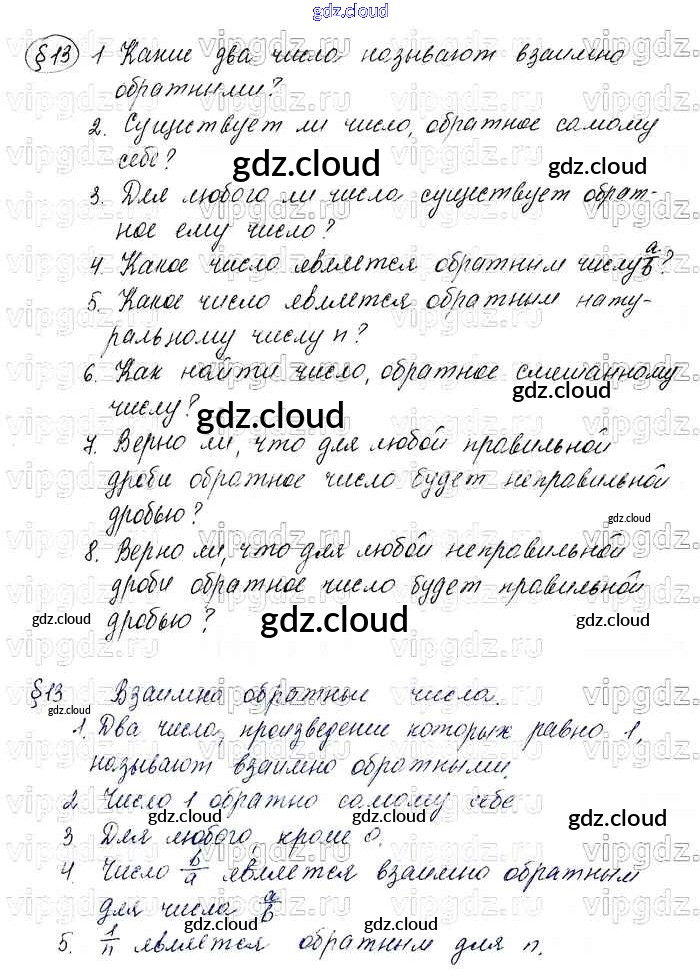 gdz.cloud
§13 1 Какие два числа называют взаимно
обратными?
2. Существует ли число, обратное самому
себе?
gdz.cloud
3. Для любого ли числа существует обрат-
ное ему число?
4. Какое число является обратным числу a/b?
5. Какое число является обратным нату-
ральному числу n?
6. Как найти число, обратное смешанному
числу?
gdz.cloud
7. Верно ли, что для любой правильной
дроби обратное число будет неправильной
дробью?
8. Верно ли, что для любой неправильной
дроби обратное число будет правильной
дробью?
gdz.cloud
§13 Взаимно обратные числа.
1. Два числа, произведение которых равно 1,
называют взаимно обратными.
2. Число 1 обратно самому себе.
3 Для любого, кроме 0.
4. Число b/a является взаимно обратным
для числа a/b
5. 1/n является обратным для n.